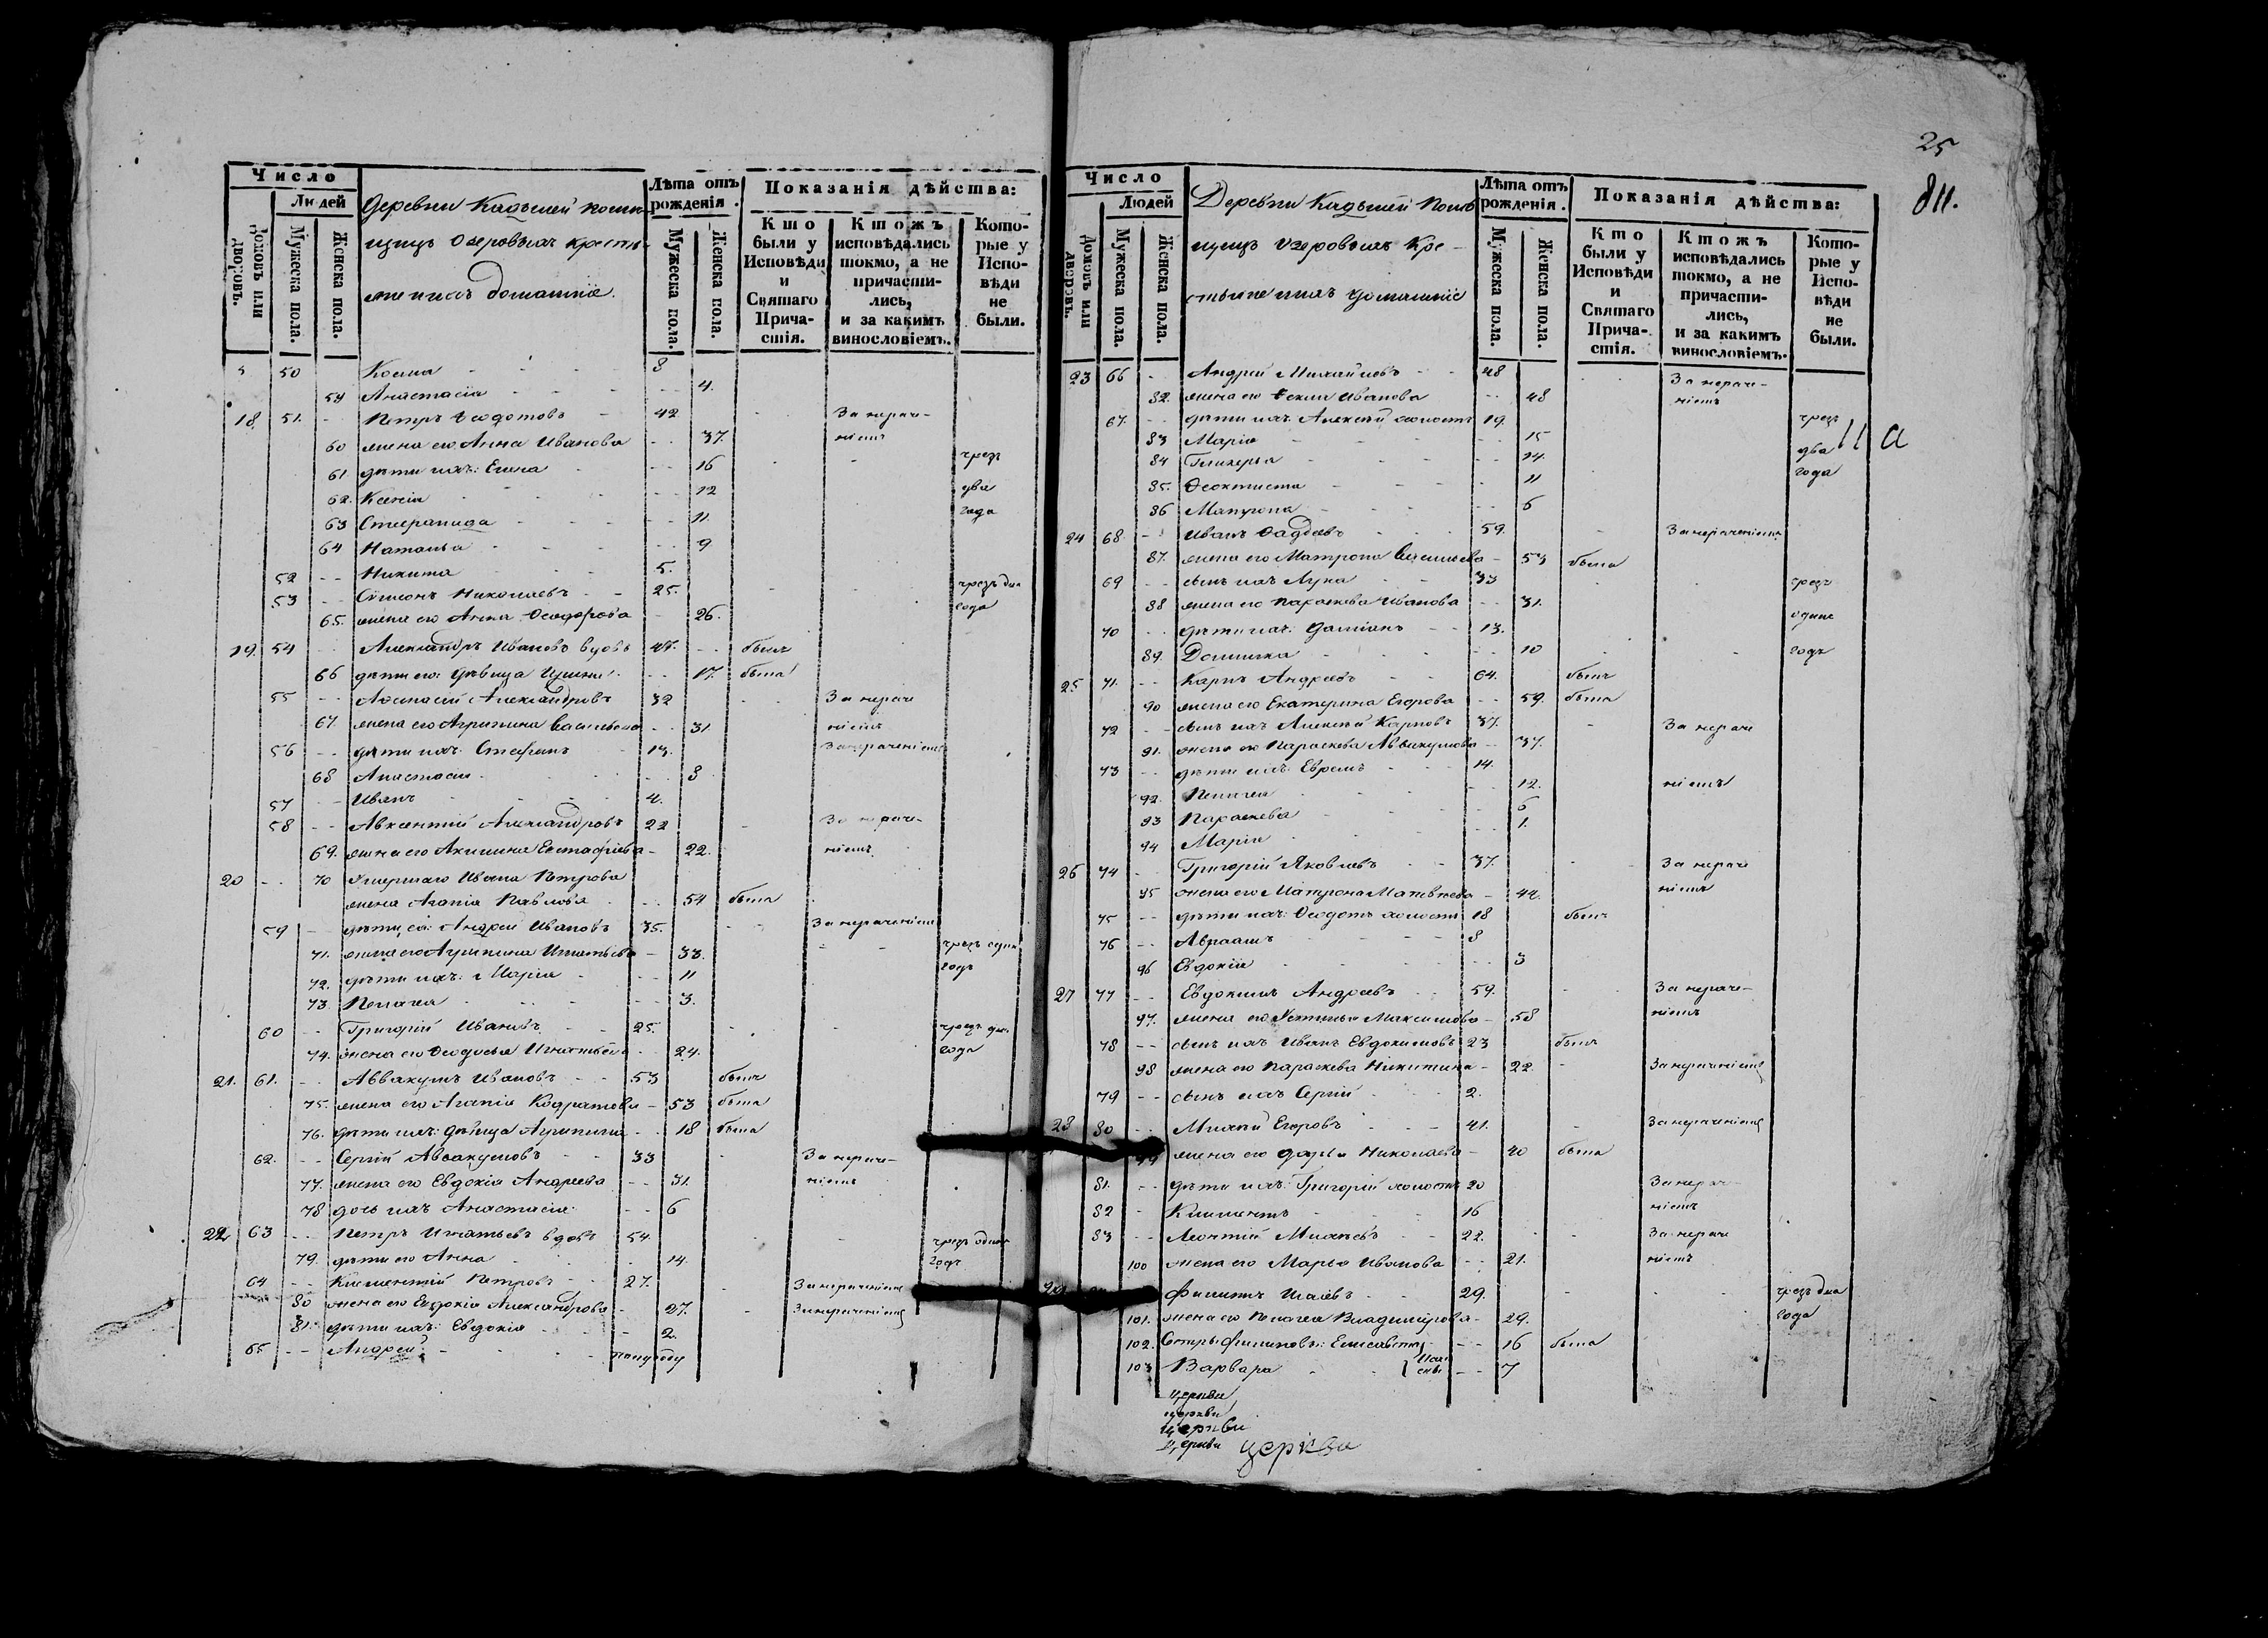 25
811.
11 а
Число
Людей
Домовъ или дворовъ.
Мужеска пола.
Женска пола.
Деревни Кадышей помѣ-
щицъ Озеровыхъ кресть-
менихъ домашніе.
Лѣта отъ рожденія.
Мужеска пола.
Женска пола.
Показанія дѣйства:
Кто были у Исповѣди и Святаго Причастія.
Ктожъ исповѣдались токмо, а не причастились, и за какимъ винословіемъ.
Которые у Исповѣди не были.
50 Косма 8
59 Анастасія 4.
18. 51. Петръ Ѳеодотовъ 42 За нерач-
60 жена его Анна Иванова 37. ніемъ
61 дѣти ихъ: Елена 16 чрезъ
62. Ксенія 12 два
63 Стефанида 11. года
64 Наталья 9
52 Никита 5.
53 Сѵмеонъ Николаевъ 25. чрезъ два
65. жена его Анна Ѳеодорова 26. года
19. 54 Александръ Ивановъ вдовъ 47. былъ
66 дѣти его: дѣвица 17. была
55 Аѳанасій Александровъ 32 За нерачē
67. жена его Агрипина Васильева 31 ніемъ
56 дѣти ихъ: Стефанъ 13. За нераченіемъ
68 Анастасія 8
57 Иванъ 4.
58 Авксентій Александровъ 22 За нераче-
69. жена его Акилина Евстафіева 22. ніемъ
20 70 Умершаго Ивана Петрова
жена Агапія Павлова 54 была
59 дѣти ея: Андрей Ивановъ 35. За нераченіемъ
71. жена его Агрипина Игнатьева 33. чрезъ одинъ
72. дѣти ихъ: Марія 11 годъ
73. Пелагея 3.
60 Григорій Ивановъ 25. чрезъ два
74. жена его Ѳеодосья Игнатьева 24. года
21. 61. Аввакумъ Ивановъ 53 былъ
75. жена его Агапія Кодратова 53 была
76. дѣти ихъ: дѣвица Агрипина 18 была
62. Сергій Аввакумовъ 33 За нераче-
77. жена его Евдокія Андреева 31. ніемъ
78 дочь ихъ Анастасія 6
22 63 Петръ Игнатьевъ вдовъ 54. чрезъ одинъ
79. дѣти его Анна 14. годъ
64 Климентій Петровъ 27. За нераченіемъ
80 жена его Евдокія Александрова 27. За нераченіемъ
81. дѣти ихъ: Евдокія 2.
65 Андрей полугоду
Число
Людей
Домовъ или дворовъ.
Мужеска пола.
Женска пола.
Деревни Кадышей Помѣ
щицъ Озеровыхъ Кре-
стьяненихъ домашніе
Лѣта отъ рожденія.
Мужеска пола.
Женска пола.
Показанія дѣйства:
Кто были у Исповѣди и Святаго Причастія.
Ктожъ исповѣдались токмо, а не причастились, и за какимъ винословіемъ.
Которые у Исповѣди не были.
23 66 Андрей Михайловъ 48 За нераче-
82. жена его Иванова 48 ніемъ
67. дѣти ихъ: Алексей холостъ 19. чрезъ
83 Марія 15 два
84 Гликерья 14. года
85. Ѳеоктиста 11
86 Матрона 6
24 68 Иванъ Фаддѣевъ 59. За нераченіемъ
87. жена его Матрона Васильева 53 была
69 сынъ ихъ Лука 33 чрезъ
88 жена его Параскева Иванова 31. одинъ
70 дѣти ихъ: Даміанъ 13.
89. Домника 10 годъ
25 71. Карпъ Андреевъ 64. былъ
90 жена его Екатерина Егорова 59. была
72 сынъ ихъ Алексей Карповъ 37. За нераче
91. жена его Параскева Аввакумова 37.
73 дѣти ихъ: Ефремъ 14.
92. Пелагея 12. ніемъ
93 Параскева 6
94 Марія 1.
26 74 Григорій Яковлевъ 37. За нераче
95 жена его Матрона Матвѣева 42. ніемъ
75 дѣти ихъ: Ѳеодотъ холостъ 18 былъ
76 Авраамъ 8
96 Евдокія 3
27 77 Евдокимъ Андреевъ 59. За нераче-
97. жена его Устинья Максимова 58 ніемъ
78 сынъ ихъ Иванъ Евдокимовъ 23 былъ
98 жена его Параскева Никитина 22 За нераченіемъ
79 сынъ ихъ Сергій 2.
28 80 Михей Егоровъ 41. За нераченіемъ
99 жена его Дарья Николаева 40 была
81. дѣти ихъ: Григорій холостъ 20 За нерач-
82 Климентъ 16 ніемъ
83 Леонтій Михѣевъ 22. За нераче
100 жена его Марья Иванова 21. ніемъ
29 Филипъ Исаевъ 29. чрезъ два
101. жена его Пелагея Владимірова 29. года
102. Сестры Филиповы: Елисавета 16 была
103 Варвара 7
церкви
церкви
церкви
церкви церкви